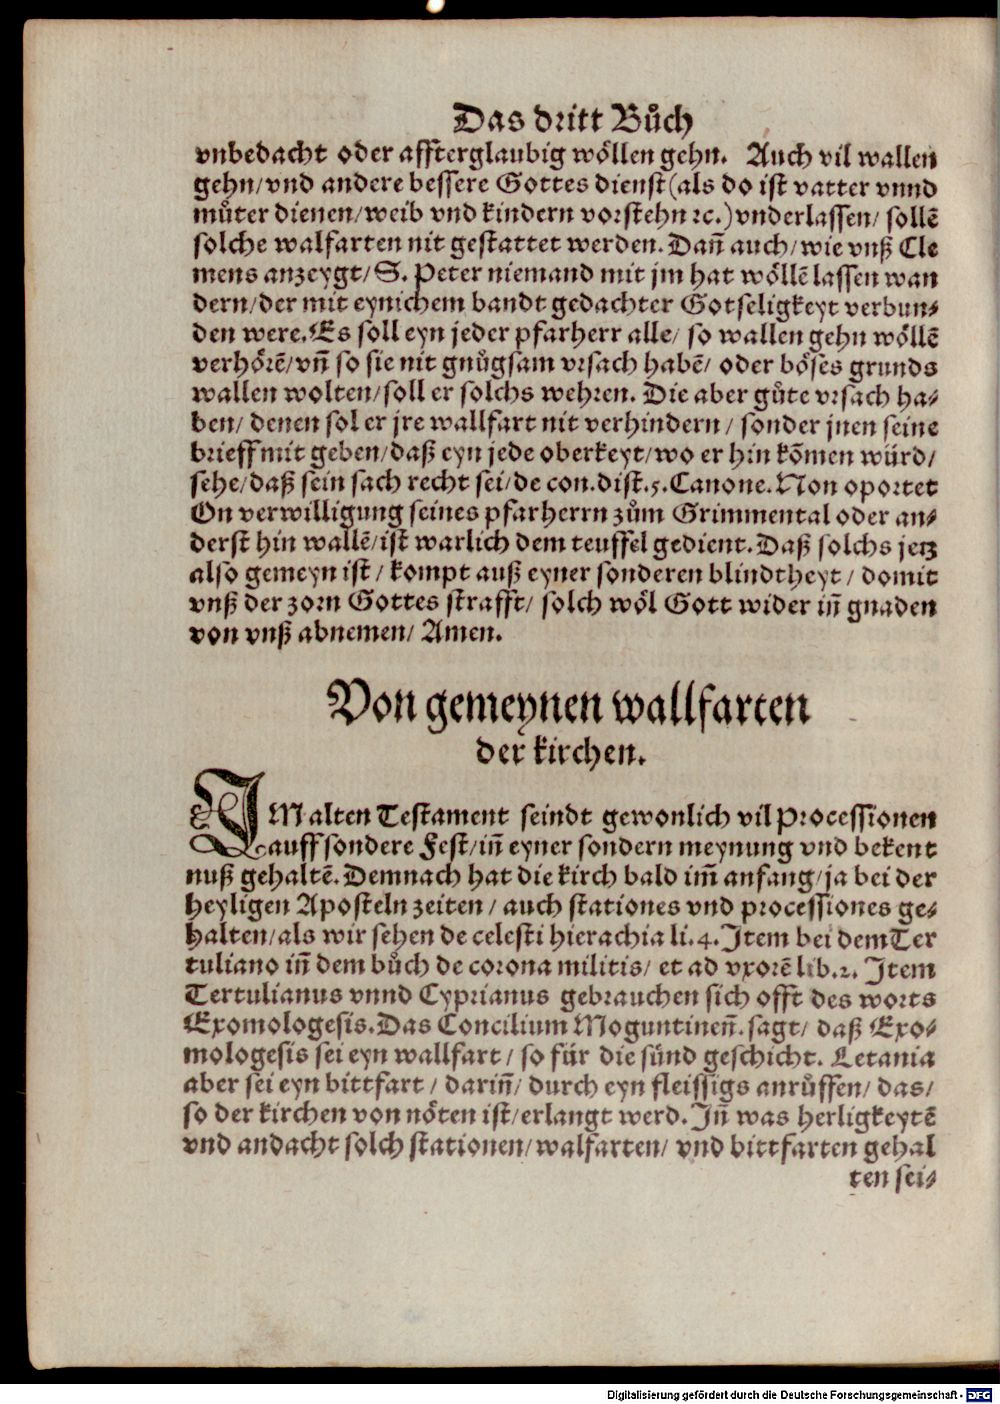 Das dritt Bůch
vnbedacht oder affterglaubig wöllen gehn. Auch vil wallen
gehn/vnd andere bessere Gottes dienst(als do ist vatter vnnd
můter dienen/weib vnd kindern vorstehn ꝛc.)vnderlassen/ sollē
solche walfarten nit gestattet werden. Dañ auch/wie vnß Cle
mens anzeygt/S. Peter niemand mit jm hat wöllē lassen wan
dern/der mit eynichem bandt gedachter Gotseligkeyt verbun⸗
den were.Es soll eyn jeder pfarherr alle/ so wallen gehn wöllē
verhörē/vñ so sie nit gnůgsam vrsach habē/ oder böses grunds
wallen wolten/soll er solchs wehren. Die aber gůte vrsach ha⸗
ben/ denen sol er jre wallfart nit verhindern/ sonder jnen seine
brieff mit geben/daß eyn jede oberkeyt/wo er hin kõmen würd/
sehe/daß sein sach recht sei/de con.dist.5.Canone.Non oportet
On verwilligung seines pfarherrn zům Grimmental oder an⸗
derst hin wallē/ist warlich dem teuffel gedient.Daß solchs jetz
also gemeyn ist/ kompt auß eyner sonderen blindtheyt/ domit
vnß der zorn Gottes strafft/ solch wöl Gott wider iñ gnaden
von vnß abnemen/ Amen.
Von gemeynen wallfarten
der kirchen.
IM alten Testament seindt gewonlich vil Processionen
auff sondere Fest/iñ eyner sondern meynung vnd bekent
nuß gehaltē. Demnach hat die kirch bald im̃ anfang/ja bei der
heyligen Aposteln zeiten/ auch stationes vnd processiones ge⸗
halten/als wir sehen de celesti hierachia li.4.Item bei dem Ter
tuliano iñ dem bůch de corona militis/ et ad vxorē lib.2. Item
Tertulianus vnnd Cyprianus gebrauchen sich offt des worts
Exomologesis.Das Concilium Moguntineñ. sagt/ daß Exo⸗
mologesis sei eyn wallfart/ so für die sünd geschicht. Letania
aber sei eyn bittfart/ dariñ/ durch eyn fleissigs anrůffen/ das/
so der kirchen von nöten ist/erlangt werd. Iñ was herligkeytē
vnd andacht solch stationen/walfarten/ vnd bittfarten gehal
ten sei⸗
Digitalisierung gefördert durch die Deutsche Forschungsgemeinschaft - DFG